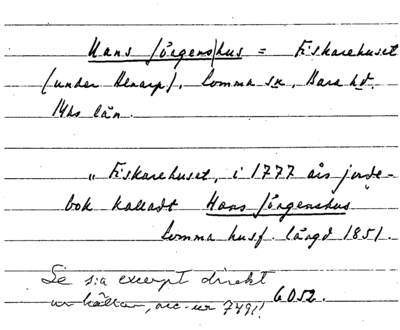 Hans Jörgens hus = Fiskarehuset
(under Alnarp), Lomma sn, Bara hd.
Mhs län.
„ Fiskarehuset, i 1777 års jorde-
bok kalladt Hans Jörgenshus
Lomma husf. längd 1851.
Se s:a excerpt direkt
ur källan, acc. nr 7491! 6052.